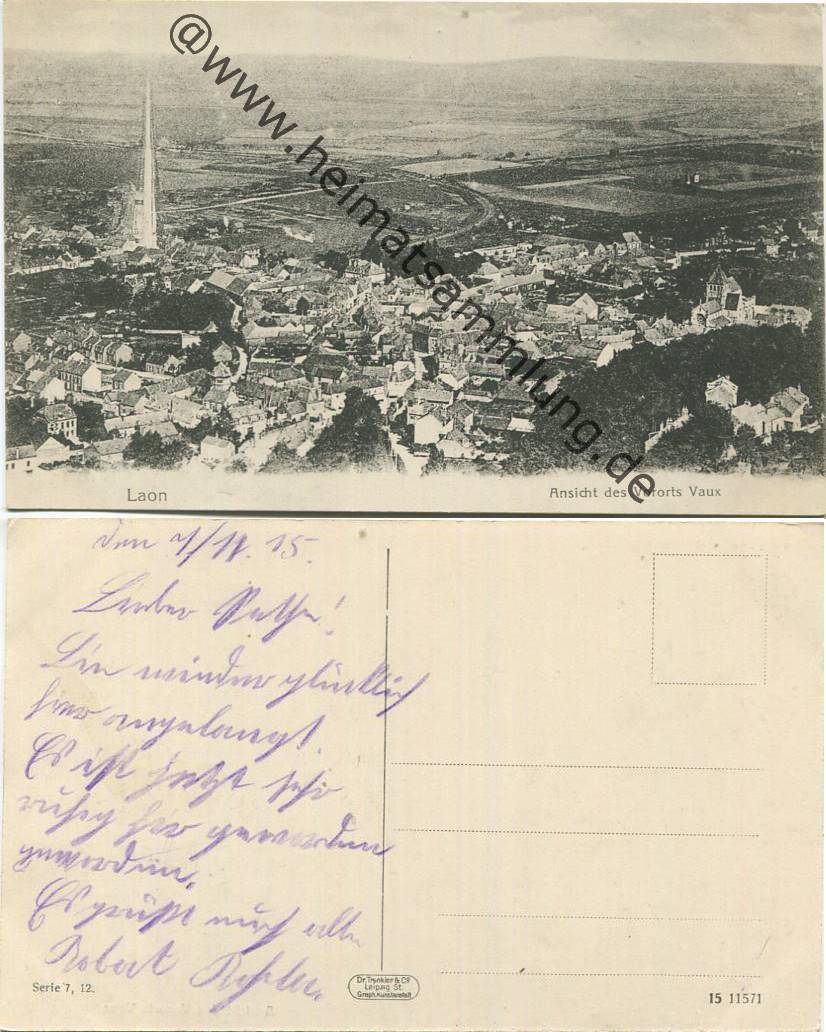 @www.heimatsammlung.de
Laon
Ansicht des Vororts Vaux
den 15.
Lieber
Bin wieder glücklich
hier angelangt.
Es ist jetzt sehr
ruhig hier geworden
geworden.
Es grüßt euch alle
Robert
Serie 7, 12.
Dr. Trenkler & Co
Leipzig St.
Graph. Kunstanstalt
15 11571